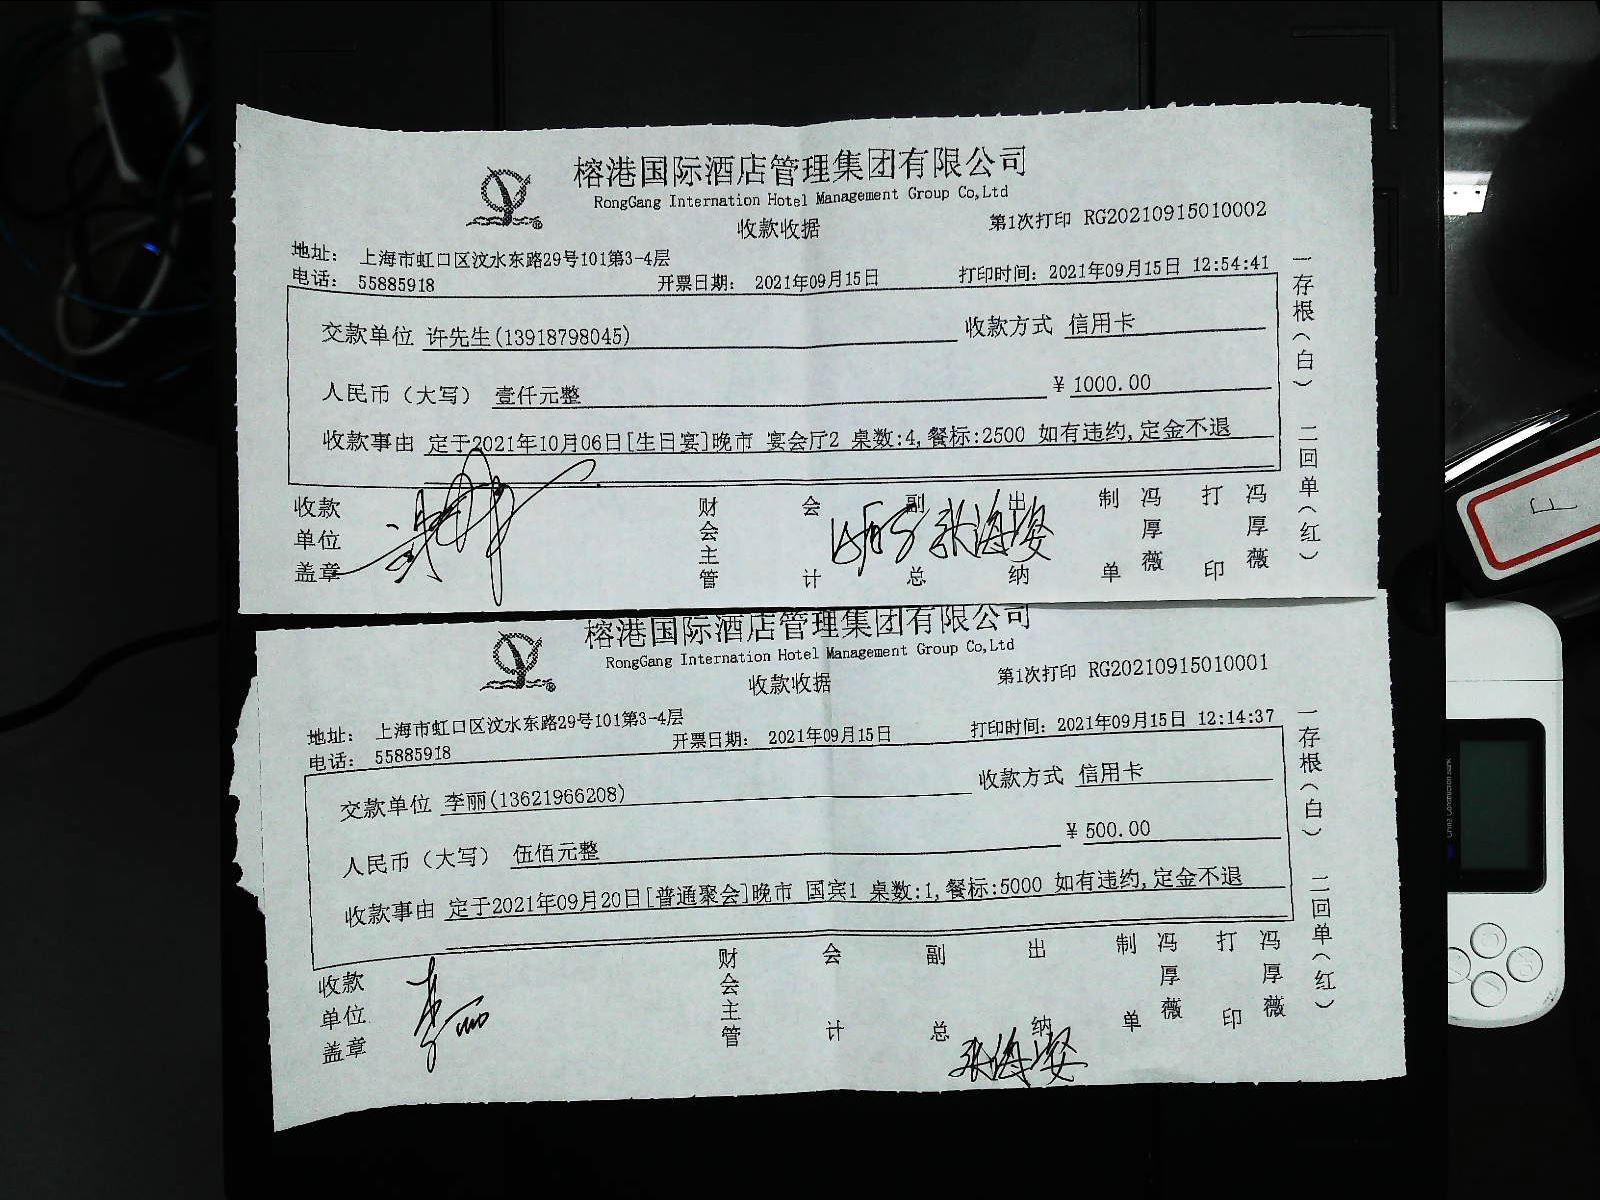 榕港国际酒店管理集团有限公司
RongGang Internation Hotel Management Group Co,Ltd
收款收据
第1次打印 RG20210915010002
地址: 上海市虹口区汶水东路29号101第3-4层
电话: 55885918 开票日期: 2021年09月15日 打印时间: 2021年09月15日 12:54:41
交款单位 许先生(13918798045) 收款方式 信用卡
人民币（大写） 壹仟元整 ¥ 1000.00
收款事由 定于2021年10月06日[生日宴]晚市 宴会厅2 桌数:4,餐标:2500 如有违约,定金不退
收款单位盖章 财会主管 会计 副总 出纳 张海燮 制单 冯厚薇 打印 冯厚薇
一存根（白） 二回单（红）
榕港国际酒店管理集团有限公司
RongGang Internation Hotel Management Group Co,Ltd
收款收据
第1次打印 RG20210915010001
地址: 上海市虹口区汶水东路29号101第3-4层
电话: 55885918 开票日期: 2021年09月15日 打印时间: 2021年09月15日 12:14:37
交款单位 李丽(13621966208) 收款方式 信用卡
人民币（大写） 伍佰元整 ¥ 500.00
收款事由 定于2021年09月20日[普通聚会]晚市 国宾1 桌数:1,餐标:5000 如有违约,定金不退
收款单位盖章 李丽 财会主管 会计 副总 出纳 张海燮 制单 冯厚薇 打印 冯厚薇
一存根（白） 二回单（红）